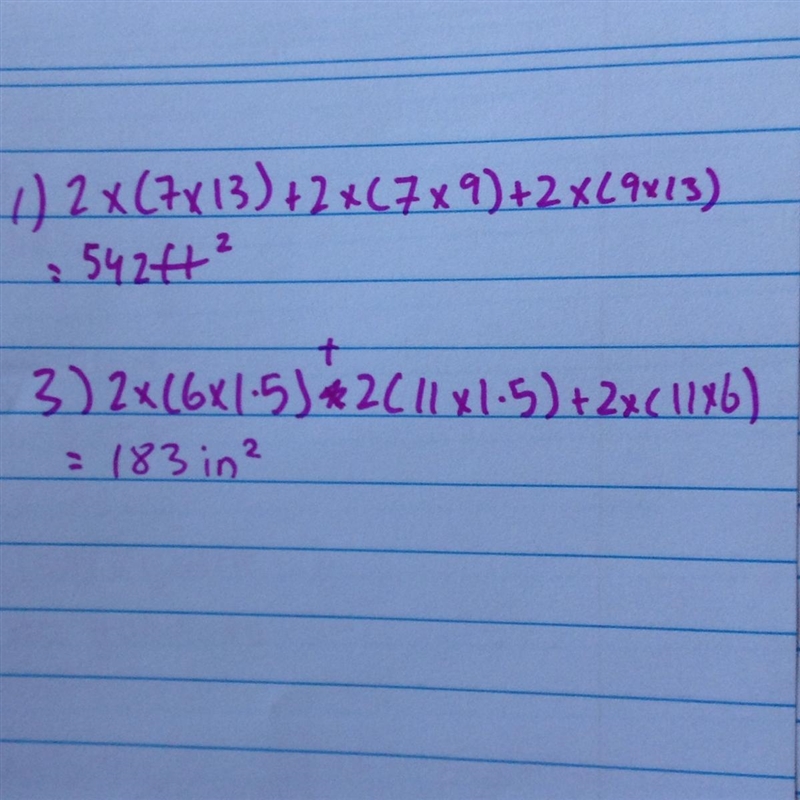 1) 2×(7×13)+2×(7×9)+2×(9×13)
= 542ft²
3) 2×(6×1.5)+2(11×1.5)+2×(11×6)
= 183 in²